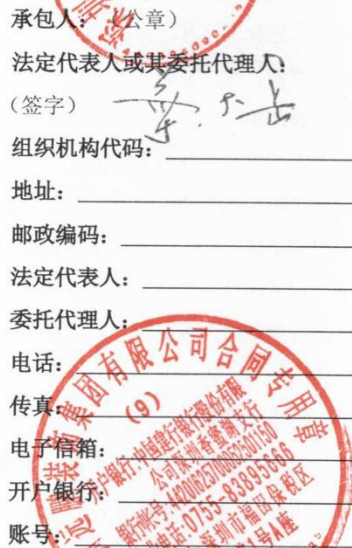 承包人：（公章）
法定代表人或其委托代理人：
（签字）
组织机构代码：
地址：
邮政编码：
法定代表人：
委托代理人：
电话：
传真：
电子信箱：
开户银行：
账号：
装饰集团有限公司合同专用章
(9)
开户银行:中国建设银行股份有限
公司深圳香蜜湖支行
电话:0755-83895666
深圳市福田保税区
1号A座